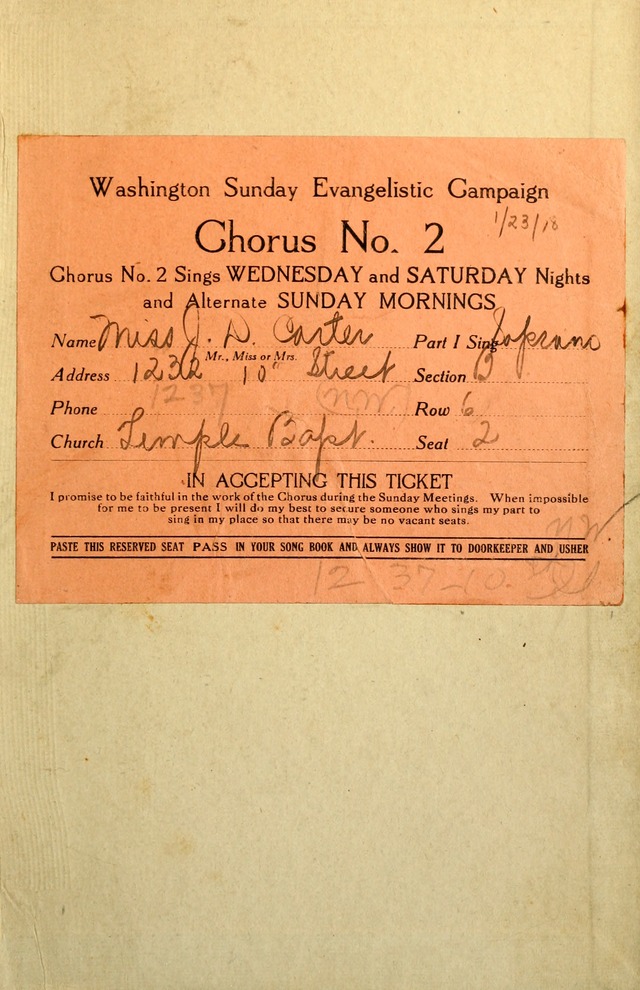 Washington Sunday Evangelistic Campaign
1/23/18
Chorus No. 2
Chorus No. 2 Sings WEDNESDAY and SATURDAY Nights
and Alternate SUNDAY MORNINGS
Name Miss J. D. Carter Part I Sing Soprano
Mr., Miss or Mrs.
Address 1232 10" Street Section B
1237 NW
Phone Row 6
Church Temple Bapt. Seat 2
IN ACCEPTING THIS TICKET
I promise to be faithful in the work of the Chorus during the Sunday Meetings. When impossible
for me to be present I will do my best to secure someone who sings my part to
sing in my place so that there may be no vacant seats.
NW
PASTE THIS RESERVED SEAT PASS IN YOUR SONG BOOK AND ALWAYS SHOW IT TO DOORKEEPER AND USHER
1237-10.